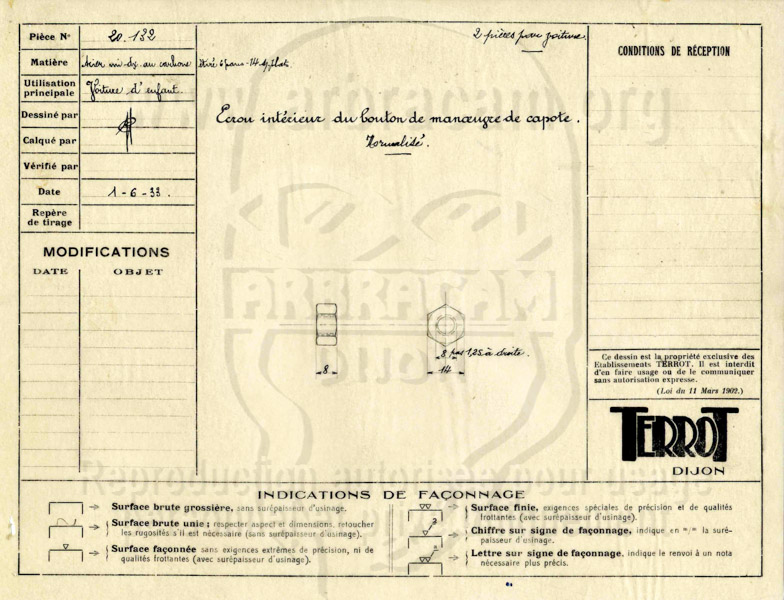 Pièce N° 20.132
2 pièces pour voiture.
Matière Acier mi-dx. au carbone étiré 6 pans-14 s/plats.
Utilisation principale Voiture d'enfant
Dessiné par
Calqué par
Vérifié par
Date 1-6-33.
Repère de tirage
Ecrou intérieur du bouton de manœuvre de capote.
Normalisé.
MODIFICATIONS
DATE OBJET
8
8 pas 1,25 à droite.
14
CONDITIONS DE RÉCEPTION
Ce dessin est la propriété exclusive des
Etablissements TERROT. Il est interdit
d'en faire usage ou de le communiquer
sans autorisation expresse.
(Loi du 11 Mars 1902.)
TERROT
DIJON
INDICATIONS DE FAÇONNAGE
Surface brute grossière, sans surépaisseur d'usinage.
Surface brute unie ; respecter aspect et dimensions, retoucher
les rugosités s'il est nécessaire (sans surépaisseur d'usinage).
Surface façonnée sans exigences extrêmes de précision, ni de
qualités frottantes (avec surépaisseur d'usinage).
Surface finie, exigences spéciales de précision et de qualités
frottantes (avec surépaisseur d'usinage).
3
Chiffre sur signe de façonnage, indique en m/m la suré-
paisseur d'usinage.
a
Lettre sur signe de façonnage, indique le renvoi à un nota
nécessaire plus précis.
www.arbracam.org
ARBRACAM
DIJON
Reproduction autorisée pour usage